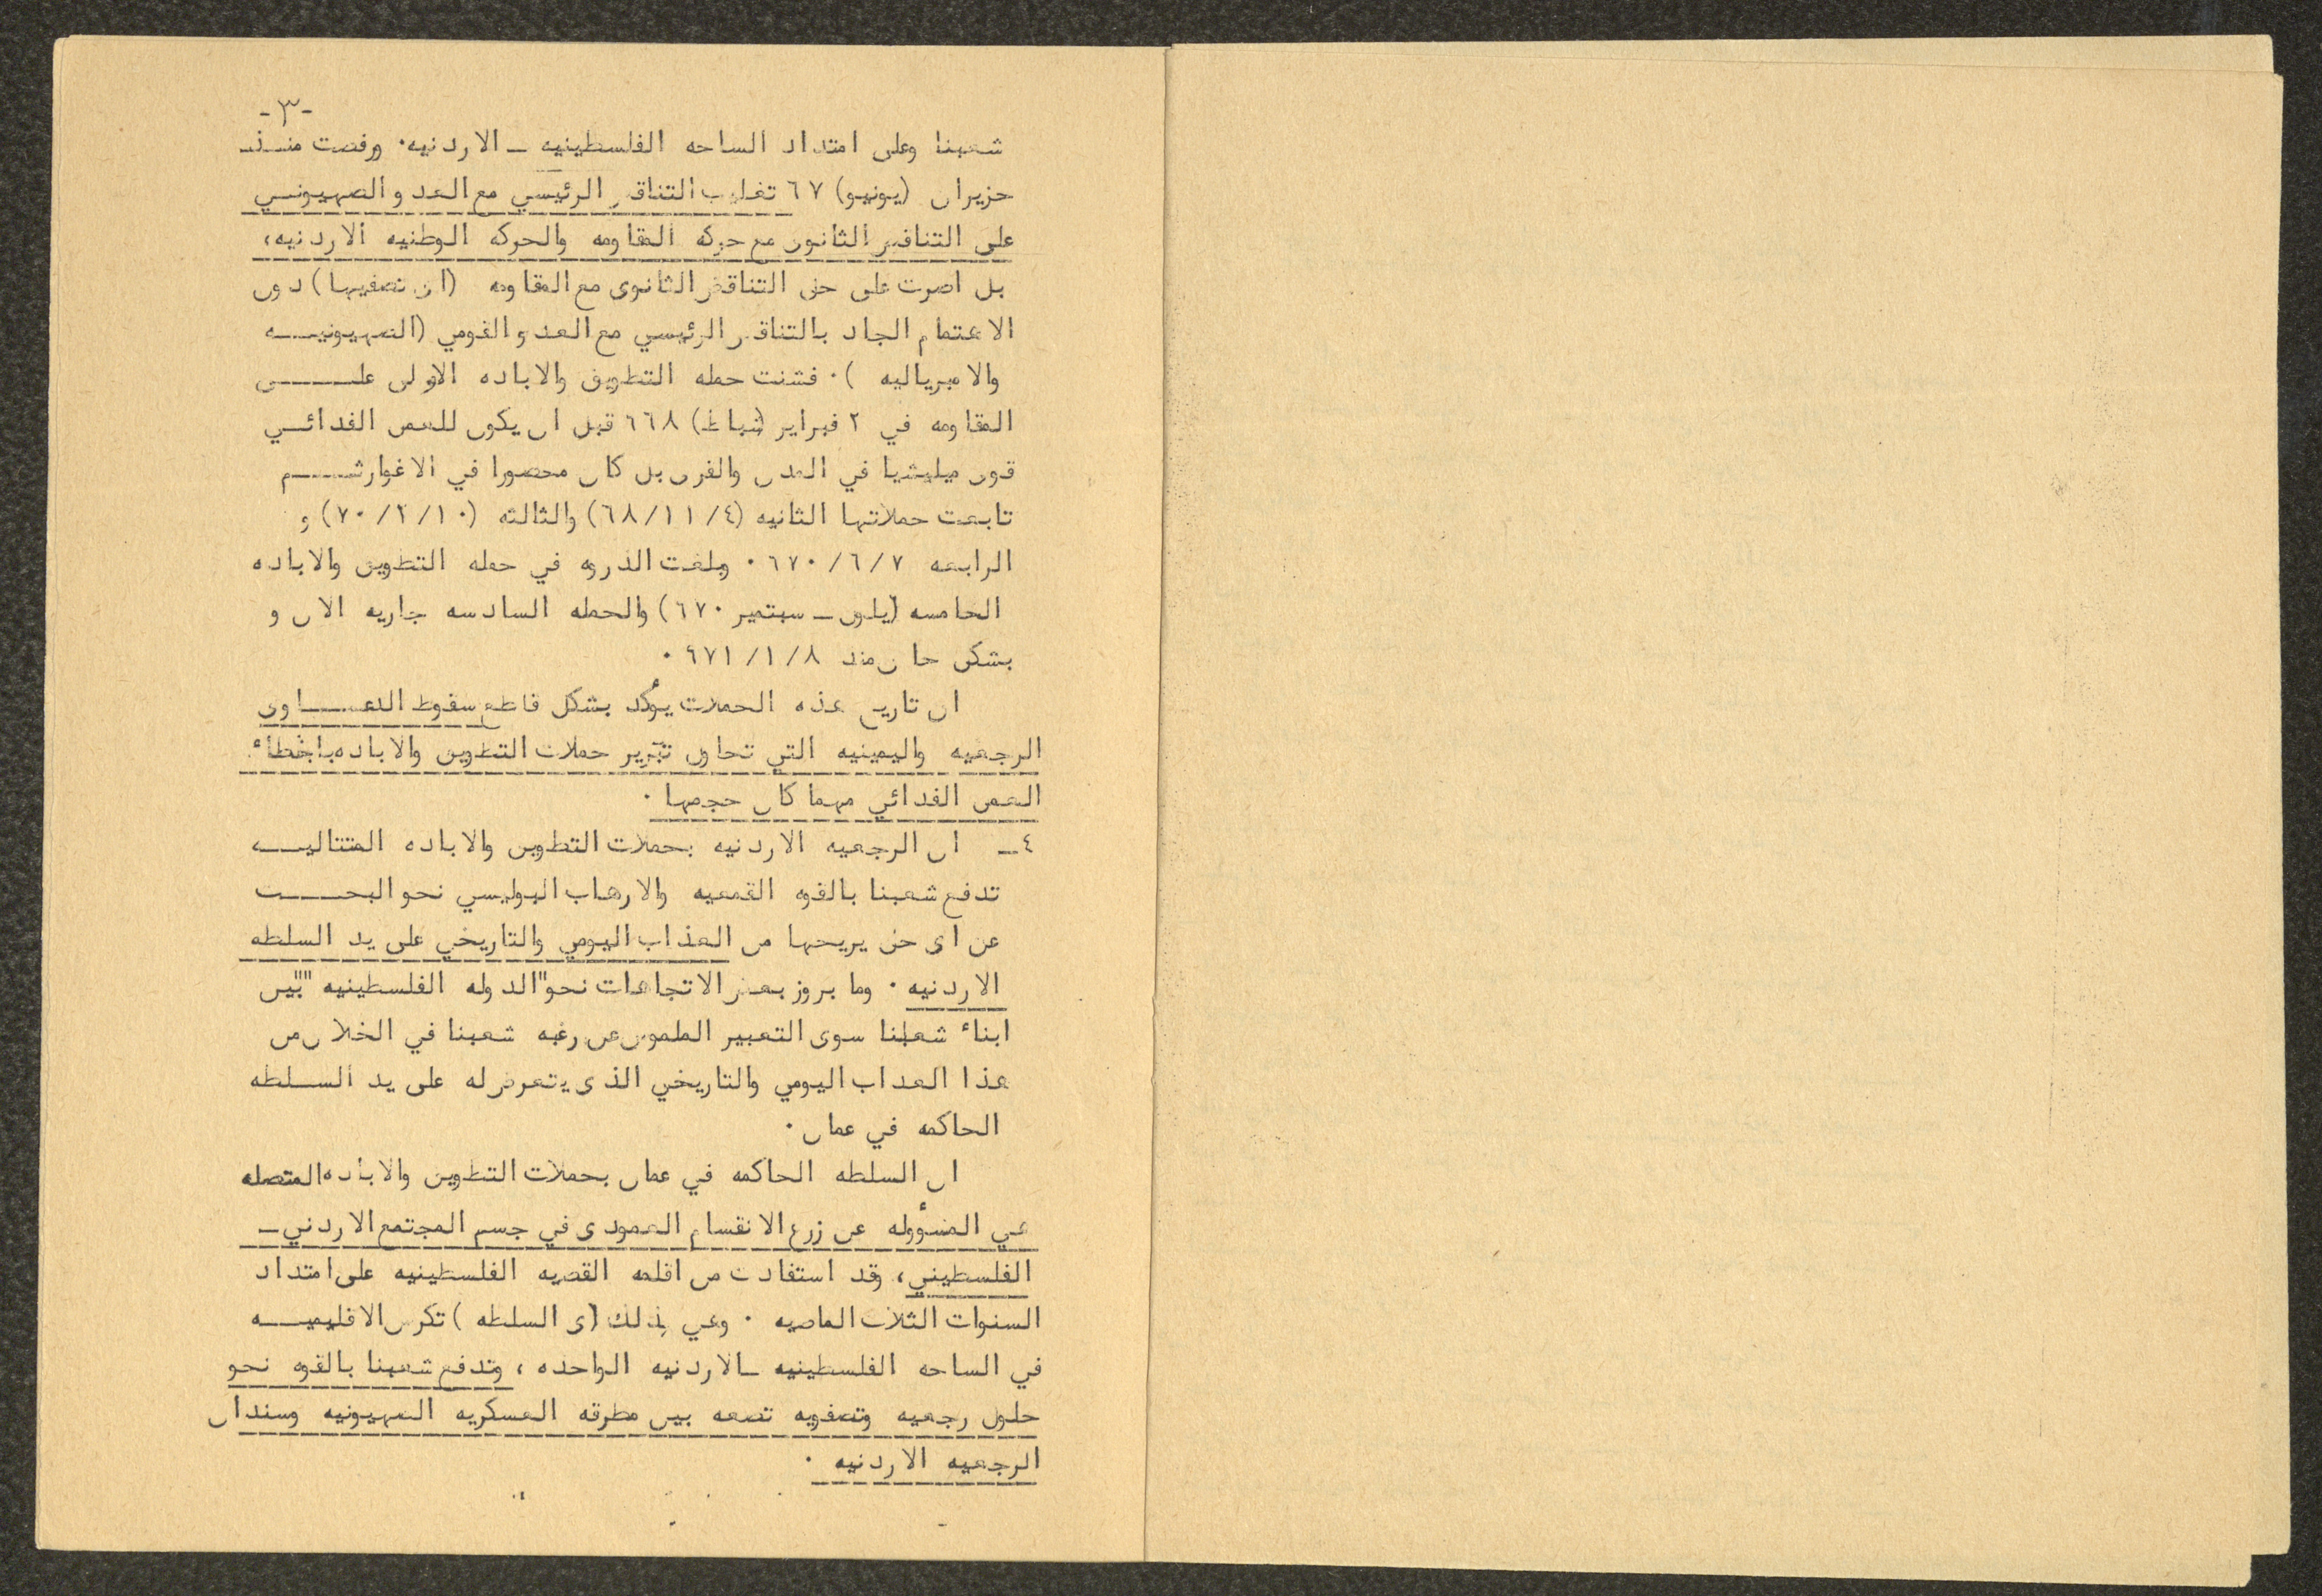 -٣-
شعبنا وعلى امتداد الساحه الفلسطينيه ـ الاردنيه. ورفضت منذ
حزيران (يونيو) ٦٧ تغليب التناقض الرئيسي مع العدو الصهيوني
على التناقض الثانوي مع حركه المقاومه والحركه الوطنيه الاردنيه،
بل اصرت على حل التناقض الثانوى مع المقاومه (اى تصفيها) دون
الاهتمام الجاد بالتناقض الرئيسي مع العدو القومي (الصهيونيه
والامبرياليه ). فشنت حمله التطويق والاباده الاولى على
المقاومه في ٢ فبراير (شباط) ٦٦٨ قبل ان يكون للعمل الفدائي
قوى ميليشيا في المدن والقرى بل كان محصورا في الاغوار ثم
تابعت حملاتها الثانيه (٦٨/١١/٤) والثالثه (٧٠/٢/١٠) و
الرابعه ٦٧٠/٦/٧ . وبلغت الذروه في حمله التطويق والاباده
الخامسه (يلول ـ سبتمبر ٦٧٠) والحمله السادسه جاريه الان و
بشكل حاد منذ ٩٧١/١/٨ .
ان تاريخ هذه الحملات يؤكد بشكل قاطع سقوط الدعاوى
الرجعيه واليمينيه التي تحاول تبرير حملات التطويق والاباده باخطاء
العمل الفدائي مهما كان حجمها .
٤ـ ان الرجعيه الاردنيه بحملات التطويق والاباده المتتاليه
تدفع شعبنا بالقوه القمعيه والارهاب البوليسي نحو البحث
عن اى حل يريحها من العذاب اليومي والتاريخي على يد السلطه
الاردنيه . وما بروز بعض الاتجاهات نحو "الدوله الفلسطينيه "بين
ابناء شعبنا سوى التعبير الملموس عن رغبه شعبنا في الخلاص من
هذا العذاب اليومي والتاريخي الذى يتعرض له على يد السلطه
الحاكمه في عمان .
ان السلطه الحاكمه في عمان بحملات التطويق والاباده المتصله
هي المسؤوله عن زرع الانقسام العمودى في جسم المجتمع الاردني ـ
الفلسطيني، وقد استفادت من اقلمه القضيه الفلسطينيه على امتداد
السنوات الثلاث الماضيه . وهي بذلك (ى السلطه ) تكرس الاقليميه
في الساحه الفلسطينيه ـ الاردنيه الواحده ، وتدفع شعبنا بالقوه نحو
حلول رجعيه وتصفويه تضعه بين مطرقه العسكريه الصهيونيه وسندان
الرجعيه الاردنيه .